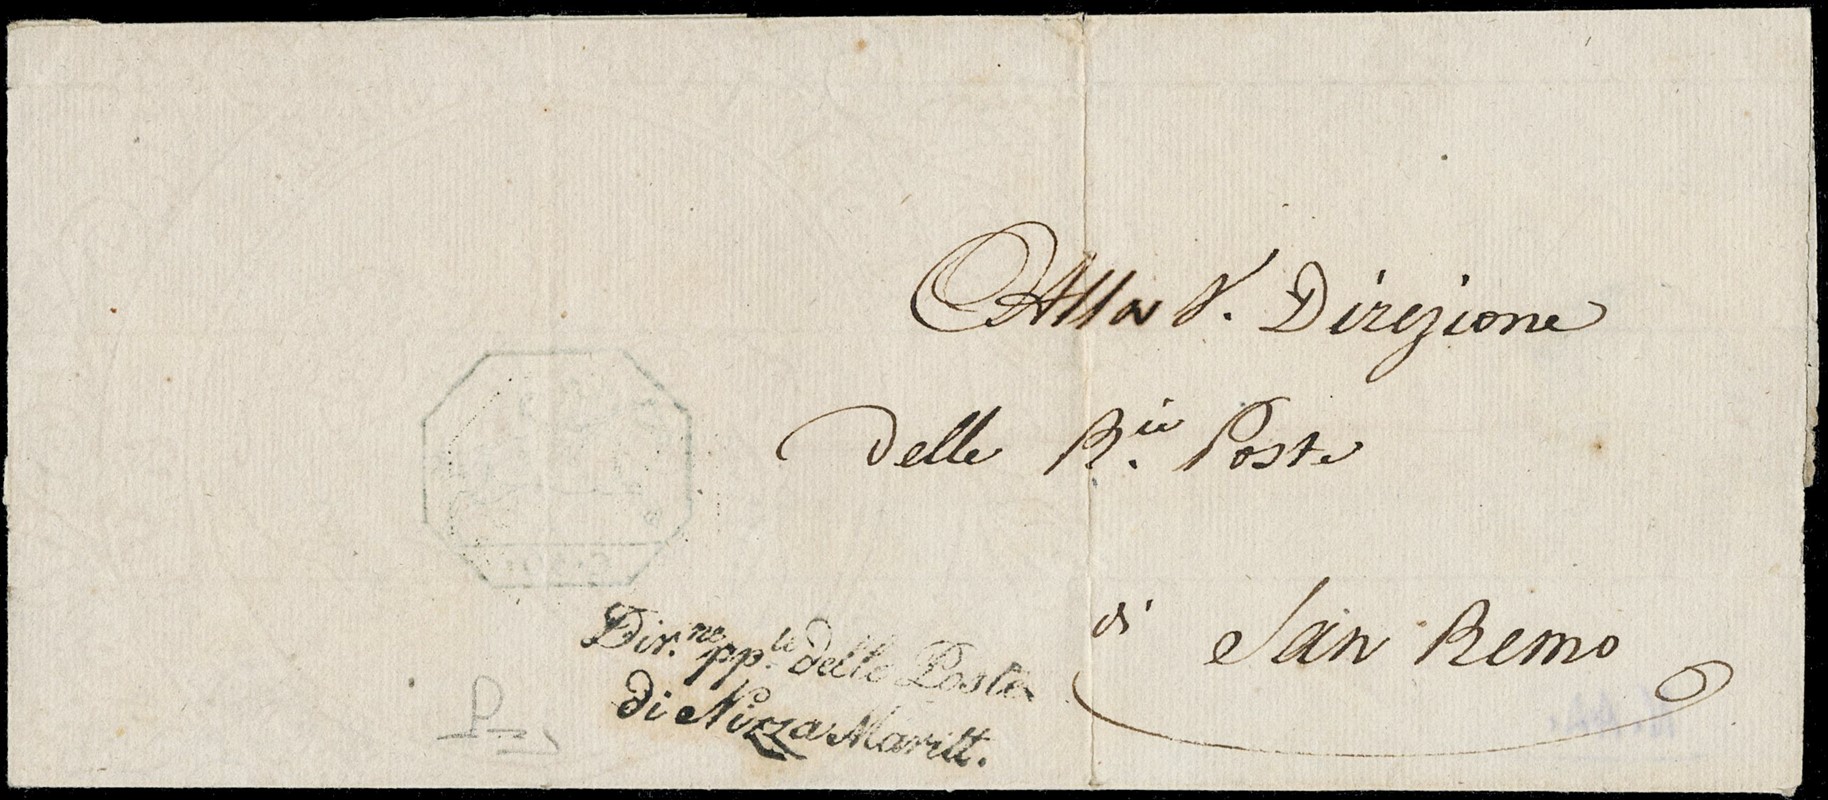 Alla V. Direzione
delle R.ie Poste
di San Remo
Dir.ne pp.le delle Poste
di Nizza Maritt.